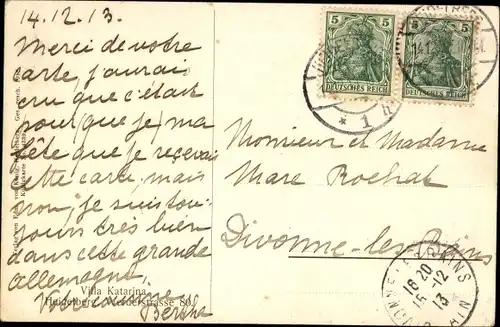 14.12.13.
Merci de votre
carte, j'aurais
cru que c'était
pour (que je) ma
fête que je recevais
cette carte, mais
non, je suis tou-
jours très bien
dans cette grande
allemagne.
Votre
Berthe
Villa Katarina
Heidelberg, Werderstrasse 80.
5 5
5 5
DEUTSCHES REICH
DEUTSCHES REICH
* 1 h
Monsieur et Madame
Marc Rochat
Divonne-les-Bains
16 20
15 -12
13